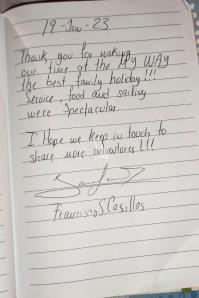 19-Jun-23
Thank you for making
our time at the MY WAY
the best family holiday!!!
Service, food and sailing
were Spectacular.
I Hope we keep in touch to
share more adventures!!!
Francisco S Casillas